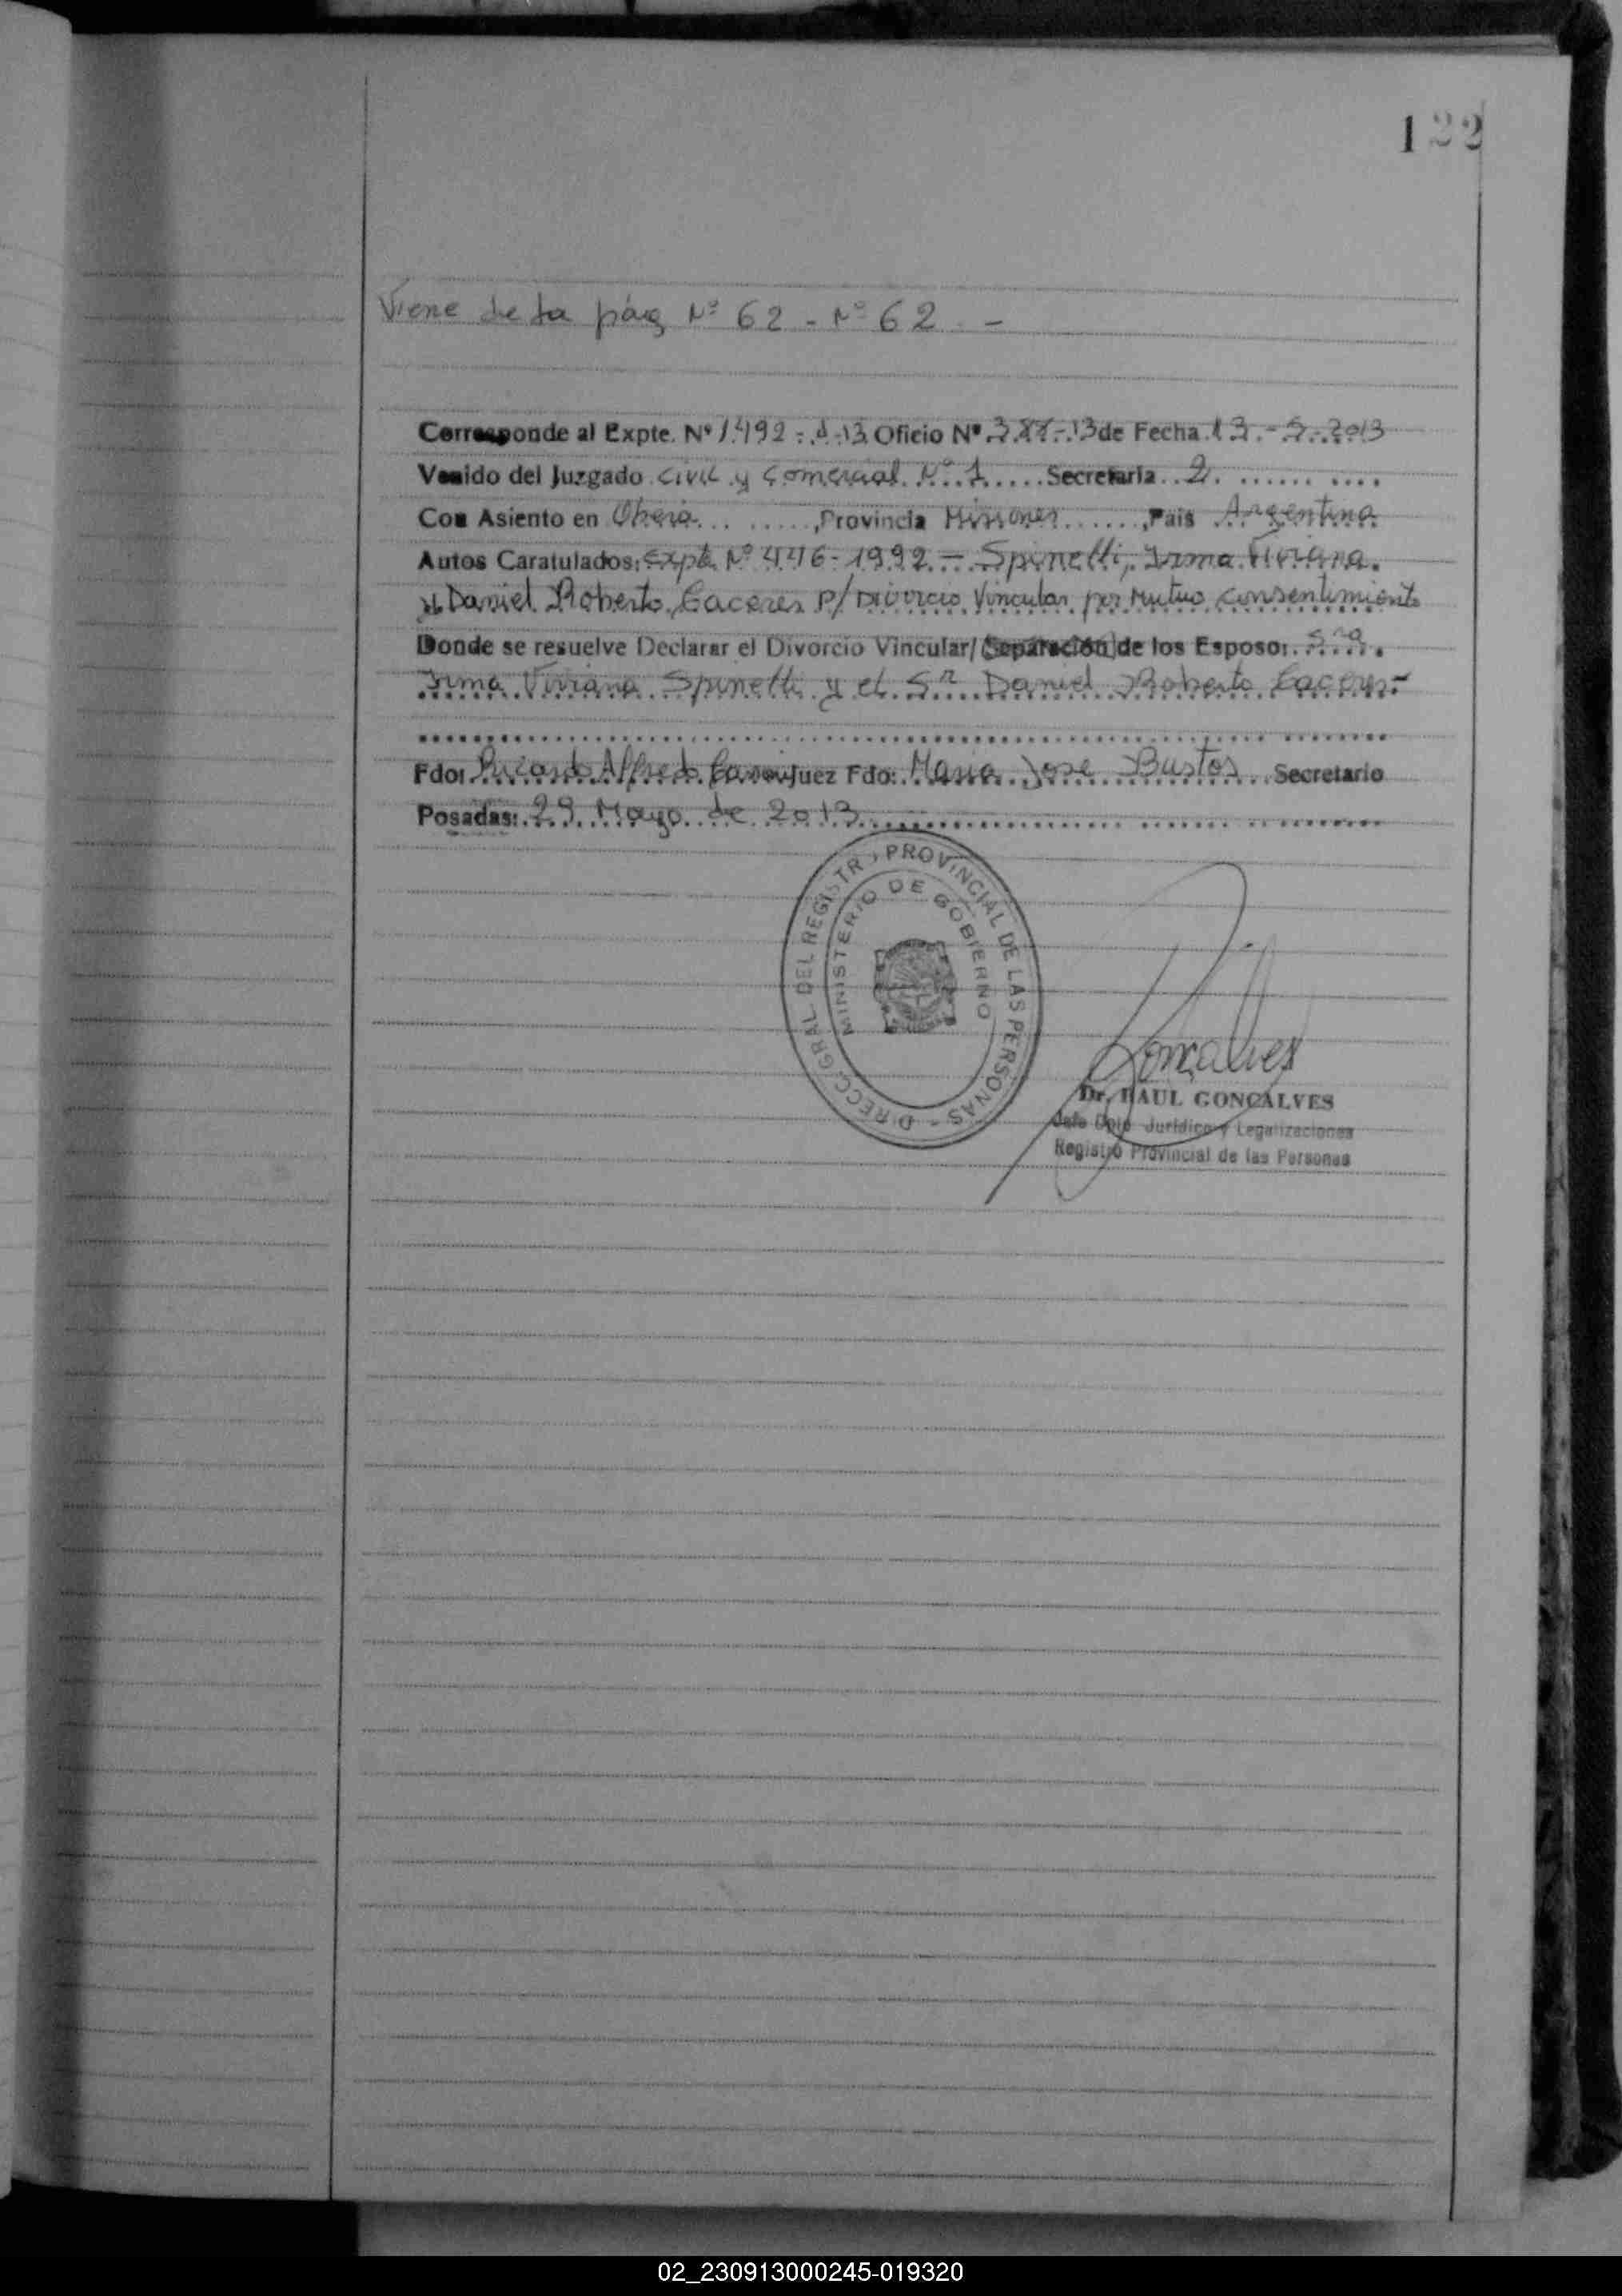 122
Viene de la pág Nº 62 - Nº 62 -
Corresponde al Expte. Nº 1492- -13 Oficio Nº -13 de Fecha 13 - 5 - 2013
Venido del Juzgado Civil y Comercial Nº 1 Secretaria 2
Con Asiento en Obera , Provincia Misiones , Pais Argentina
Autos Caratulados: Expte Nº 446-1992 - Spinelli, Irma Viviana
Daniel Roberto Caceres P/ Divorcio Vincular por Mutuo Consentimiento
Donde se resuelve Declarar el Divorcio Vincular/(Separación) de los Esposo: Sra
Irma Viviana Spinelli y el Sr Daniel Roberto Caceres-
Fdo: Ricardo Alfredo Juez Fdo: Maria Jose Bustos Secretario
Posadas: 29 Mayo de 2013
DIRECC. GRAL. DEL REGISTRO PROVINCIAL DE LAS PERSONAS -
MINISTERIO DE GOBIERNO
Goncalves
Dr. RAUL GONCALVES
Jefe Dpto Jurídico y Legalizaciones
Registro Provincial de las Personas
02_230913000245-019320